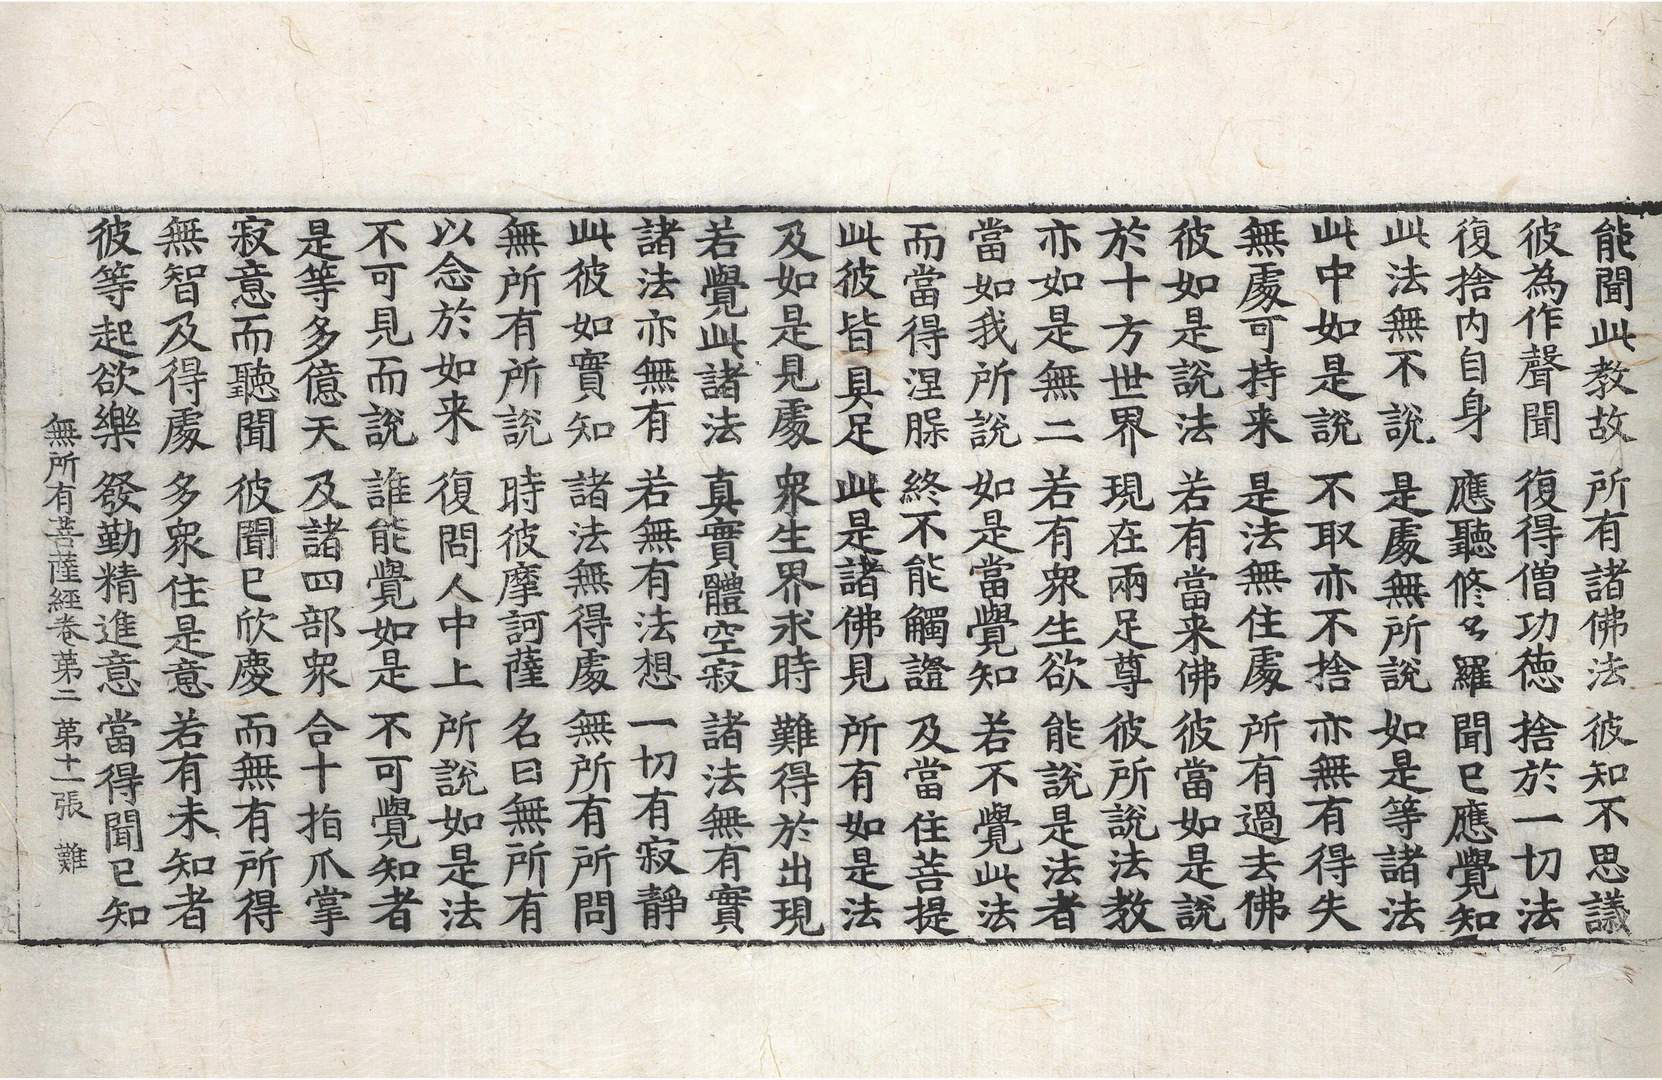 能聞此教故 所有諸佛法 彼知不思議
彼為作聲聞 復得僧功徳 捨於一切法
復捨内自身 應聽修多羅 聞已應覺知
此法無不說 是處無所說 如是等諸法
此中如是說 不取亦不捨 亦無有得失
無處可持来 是法無住處 所有過去佛
彼如是說法 若有當来佛 彼當如是說
於十方世界 現在兩足尊 彼所說法教
亦如是無二 若有衆生欲 能說是法者
當如我所說 如是當覺知 若不覺此法
而當得涅槃 終不能觸證 及當住菩提
此彼皆具足 此是諸佛見 所有如是法
及如是見處 衆生界求時 難得於出現
若覺此諸法 真實體空寂 諸法無有實
諸法亦無有 若無有法想 一切有寂靜
此彼如實知 諸法無得處 無所有所問
無所有所說 時彼摩訶薩 名曰無所有
以念於如来 復問人中上 所說如是法
不可見而說 誰能覺如是 不可覺知者
是等多億天 及諸四部衆 合十指爪掌
寂意而聽聞 彼聞已欣慶 而無有所得
無智及得處 多衆住是意 若有未知者
彼等起欲樂 發勤精進意 當得聞已知
無所有菩薩經卷苐二 苐十一張 難